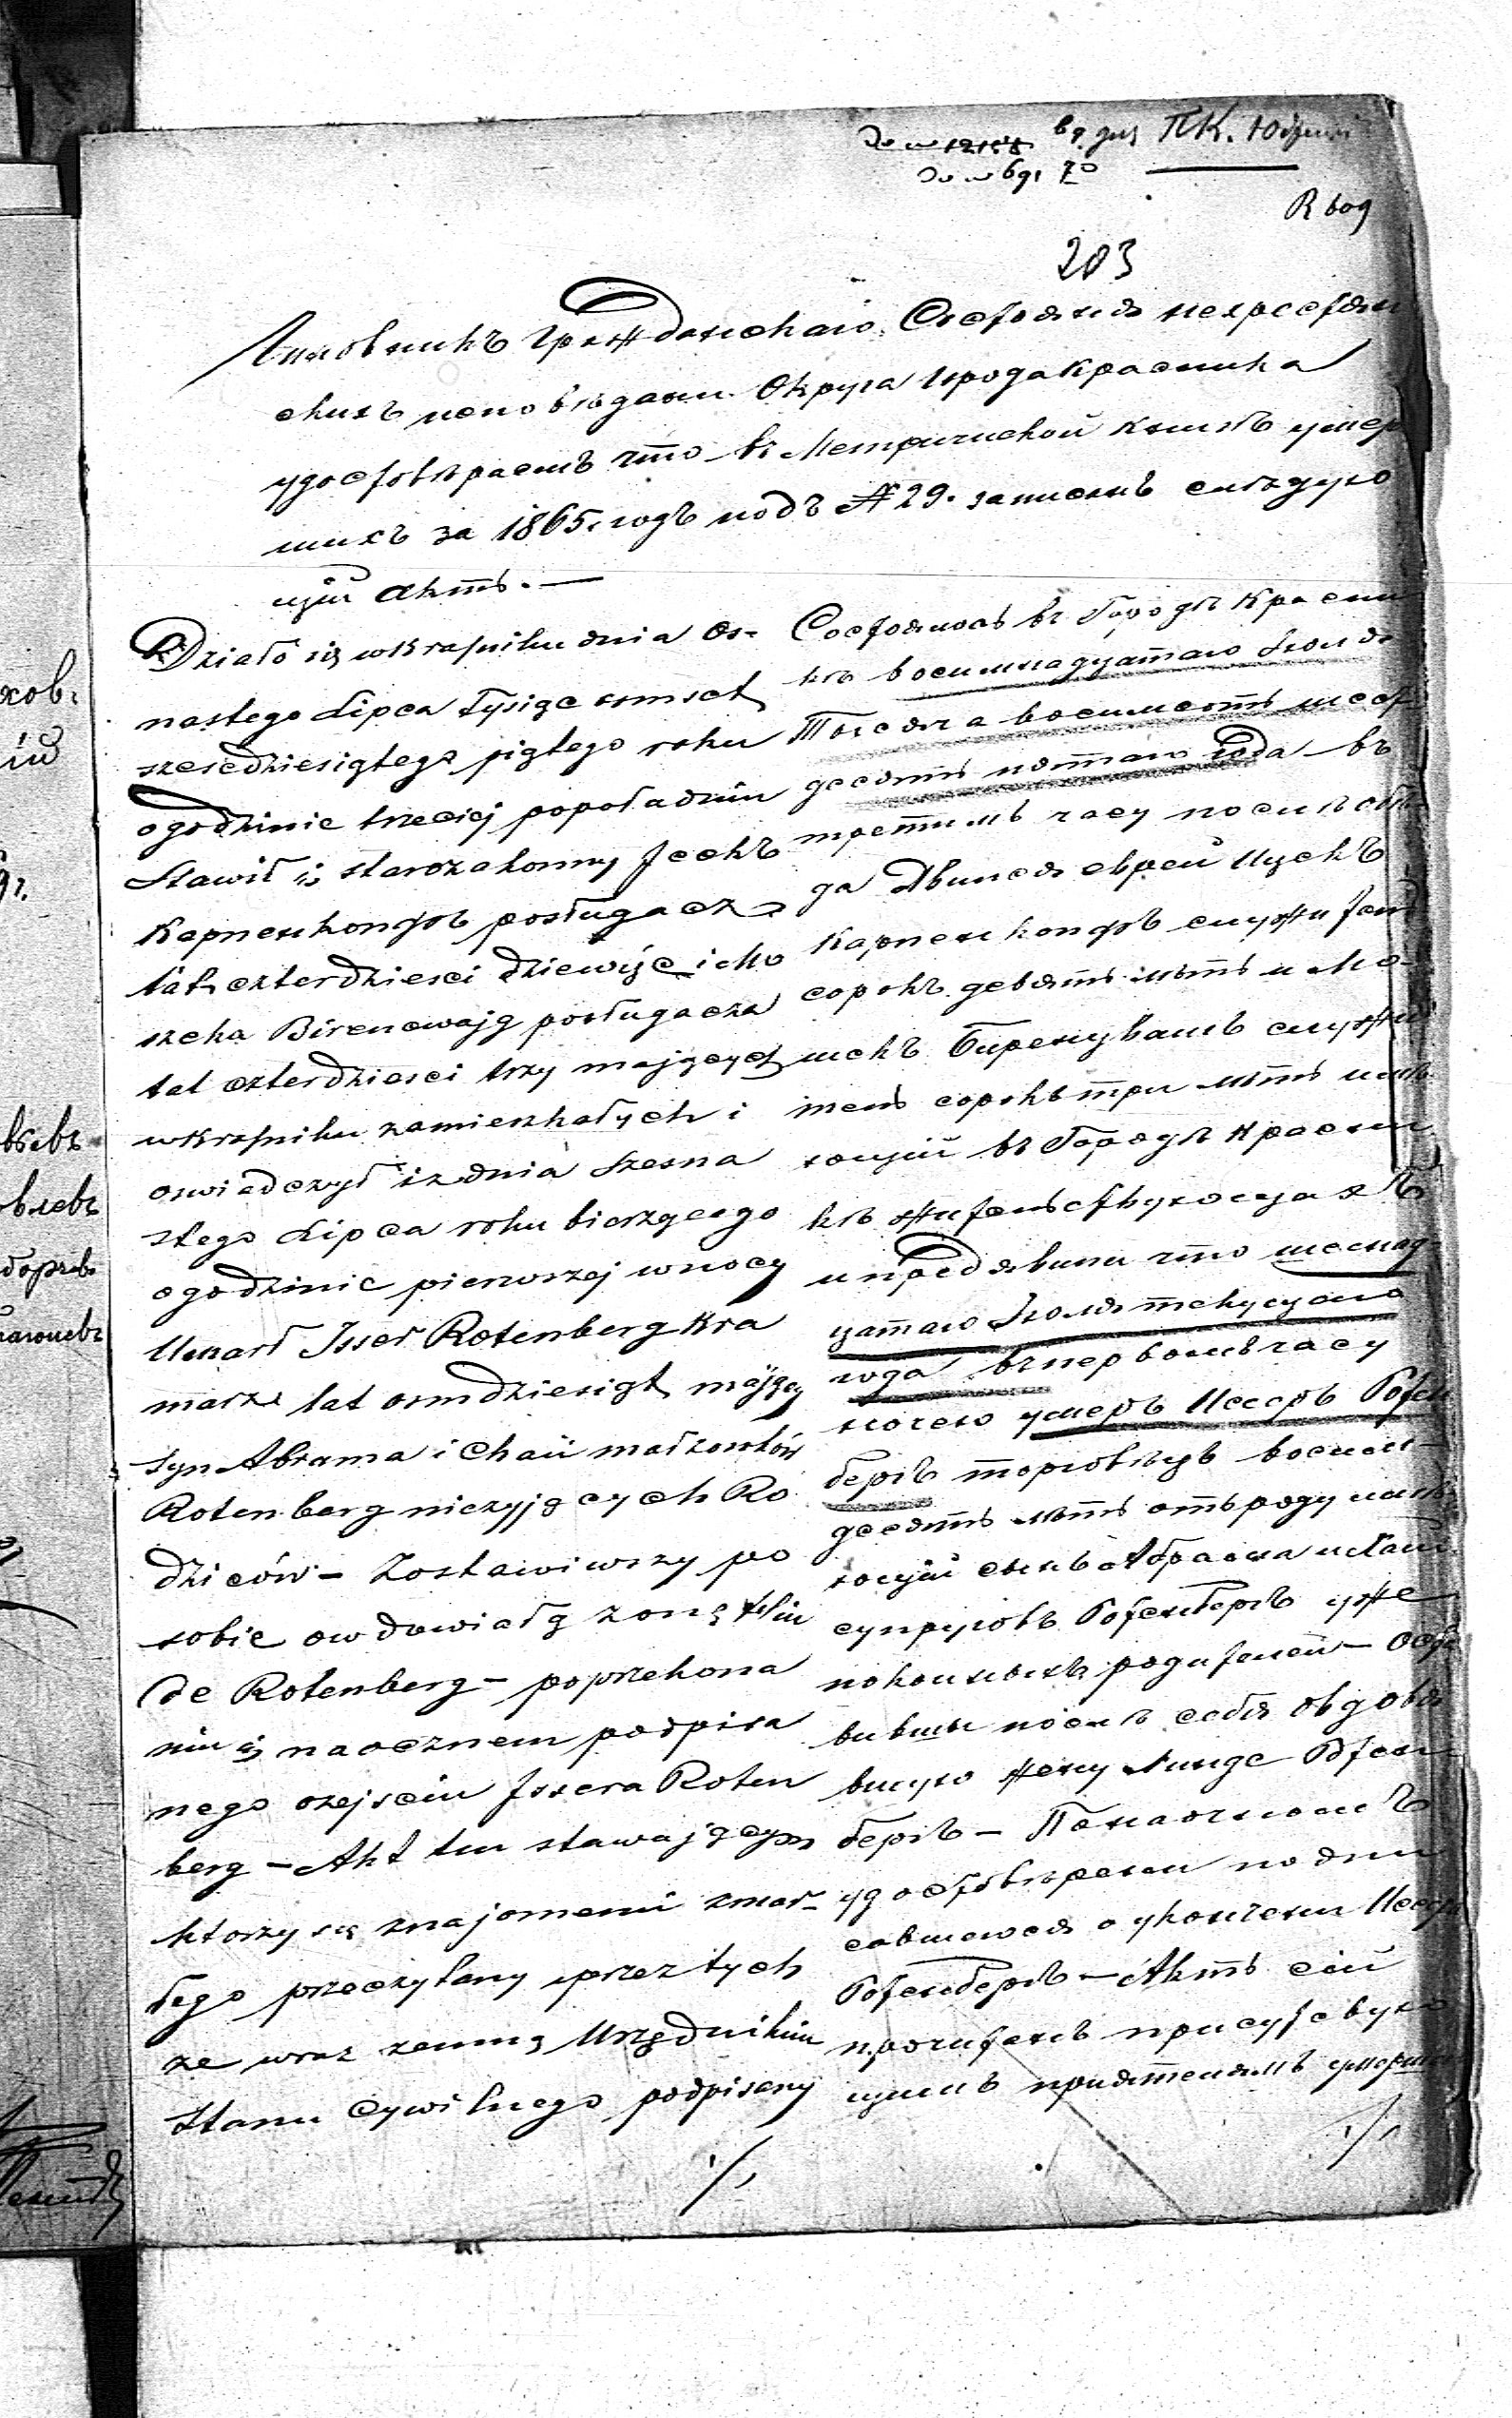 203
Чиновникъ Гражданскаго Состоянія нехристіян
скихъ исповѣданій Округа города Красника
удостовѣряетъ что въ Метрической книгѣ умер
шихъ за 1865 годъ подъ № 29. записанъ слѣдую
щій Актъ. —
Działo się w Krasniku dnia Os-
nastego Lipca tysiąc osmset
szescdziesiątego piątego roku
o godzinie trzeciej popołudniu
Stawił się starozakonny Jcekъ
posługacz
lat czterdziesci dziewięć i Mo
szeka Birencwajg posługacza
lat czterdziesci trzy mających
w Krasniku zamieszkałych i
oswiadczył iż dnia Szesna
stego Lipca roku bieżącego
o godzinie pierwszej w nocy
Umarł Isser Rotenberg Kra
marz lat osmdziesiąt mający
syn Abrama i Chaii małżonków
Rotenberg nieżyjących Ro
dziców – Zostawiwszy po
sobie owdowiałą żonę Hin
de Rotenberg – po przekona
niu się naocznem podpisa
nego o zejsciu Issera Roten
berg – Akt ten stawającym
ktorzy są znajomemi zmar-
łego przeczytany przez tych
że wraz zemną Urzędnikiem
Stanu Cywilnego podpisany
./.
Состоялось въ Городѣ Красни
кѣ восимнадцатаго Іюля
Тысяча восимсотъ шест
десятъ пятаго года въ
третимъ часу послѣ обѣ
да Явился еврей Ицекъ
служитель
сорокъ девять лѣтъ и Мо-
шекъ Биренцвайгъ служи
тель сорокъ три лѣтъ имѣ
ющій въ Городѣ Красни
кѣ жительствующая
и предъявили что шеснад
цатаго Іюля текущаго
года въ первомъ часу
ночею умеръ Иссеръ Ротен
бергъ торговецъ восимь-
десятъ лѣтъ отъ роду имѣ
ющій сынъ Абрама и Хаи
супруговъ Ротенбергъ уже
покойныхъ родителей – Оста
вивши послѣ себя овдовѣ
вшую жену Гинде Ротен
бергъ – По наочномъ
удостовѣрении подпи
савшегося о укончении Иссера
Ротенбергъ – Актъ сей
прочитанъ присутствую
щимъ приятелямъ умершаго
./.